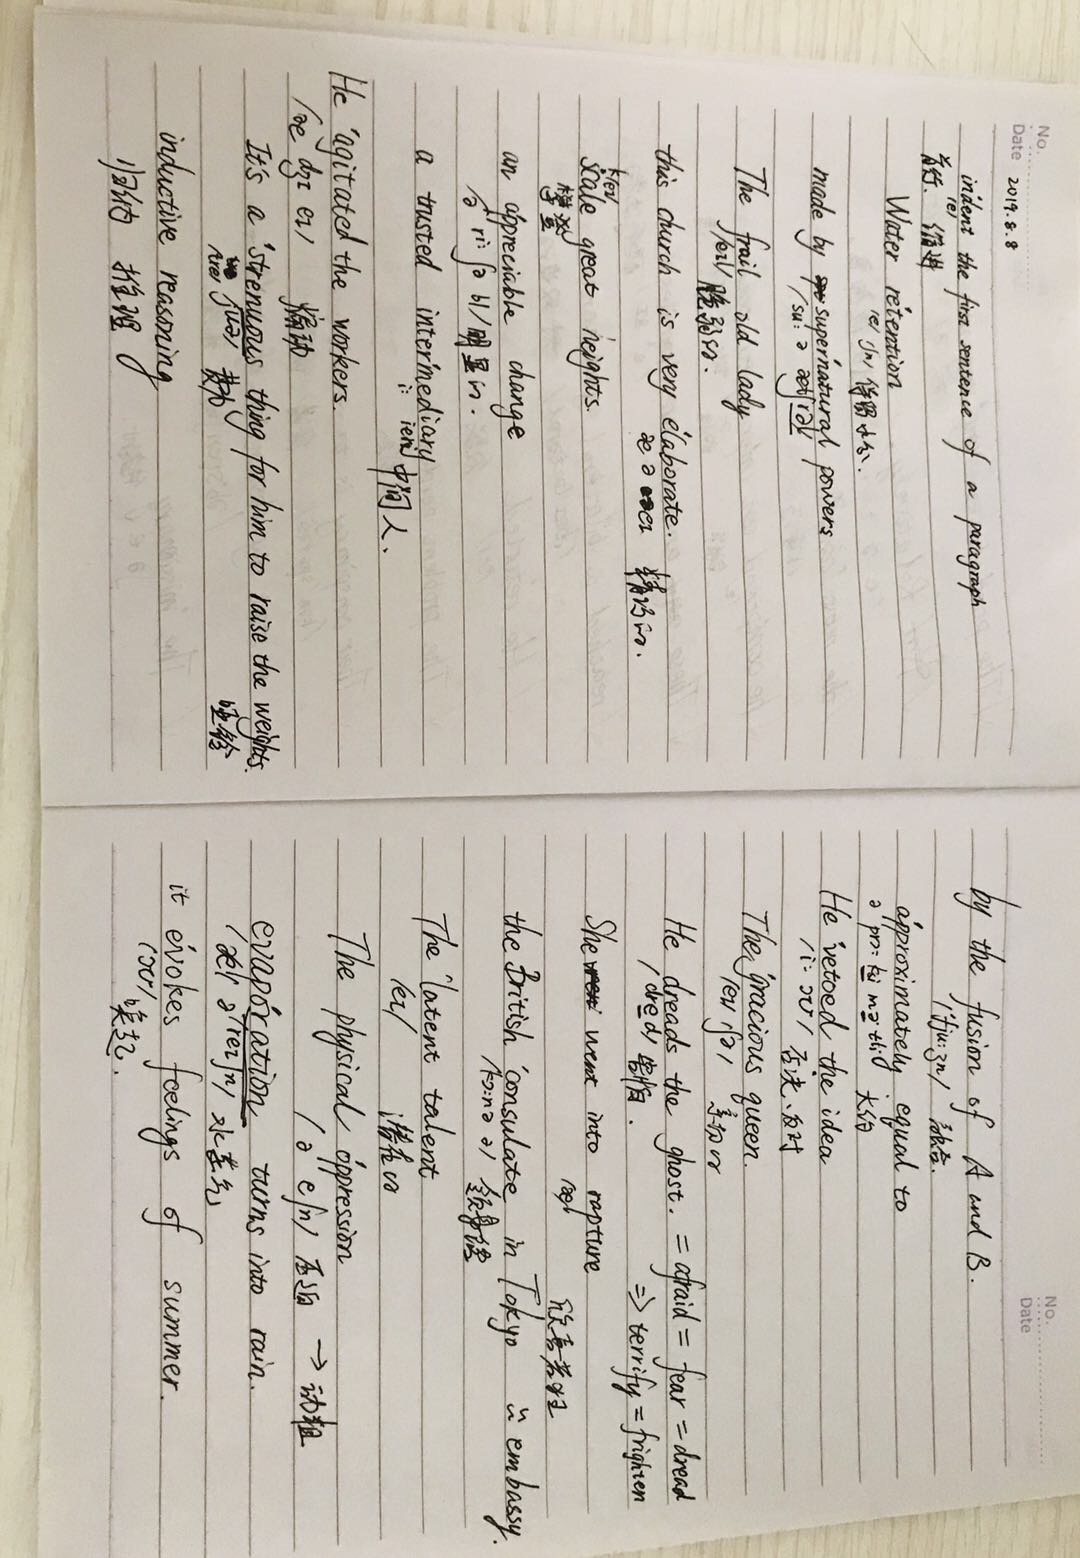 No.
Date 2019.8.8
indent the first sentence of a paragraph
/e/
首行 缩进
Water retention
/e/ ʃn/ 保留水分.
made by supernatural powers
/su: ə ætʃrəl/
The frail old lady
/eɪl/ 脆弱的.
this church is very elaborate.
æ ə eɪ 精巧的.
scale great heights.
k/eɪ/
攀登
an appreciable change
/ə ri: ʃə bl/ 明显的.
a trusted intermediary
i: iəri/ 中间人.
He agitated the workers.
/æ dʒɪ eɪ/ 煽动
It's a strenuous thing for him to raise the weights.
费力 哑铃
inductive reasoning
归纳 推理
No.
Date
by the fusion of A and B.
/fju:ʒn/ 融合.
approximately equal to
大约
He vetoed the idea
/i: əʊ/ 否决、反对
The gracious queen.
/eɪ ʃə/
He dreads the ghost. = afraid = fear = dread
/dred/ 害怕. => terrify = frighten
She went into rapture
ræp 欣喜若狂
the British consulate in Tokyo embassy.
领事馆
The latent talent
/eɪ/ 潜在的
The physical oppression
/ə e ʃn/ 压迫 →
evaporation turns into rain.
/æ ə reɪʃn/ 水蒸气
it evokes feelings of summer.
/əʊ/
唤起.